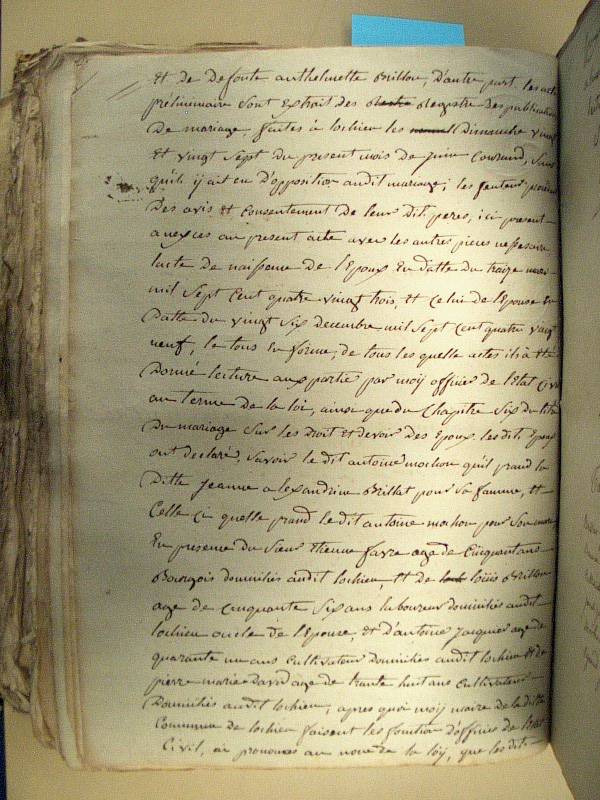 Et de defunte anthelmette Brillon, D'autre part les actes
préliminaire sont Extrait des Registre des publication
De mariage, faites à lochieu les Dimanche vingt
Et vingt sept du present mois de juin Courrand, sans
qu'ils y ait eu D'opposition audit mariage; les futeur
Des avis et consentement De leur Dit peres, ici present
anexces au present acte avec les autres pieces nessesaire
lacte de naissence de l'Epoux En datte Du traize
mil sept Cent quatre vingt trois, Et Celui de l'Epouse En
Datte du vingt six decembre mil sept Cent quatre vingt
neuf, le tous En forme, de tous les quelle actes il à été
Donné lecture aux partie par moij officier de l'Etat Civil
au terme de la loi, ainsi que du Chapitre six du titre
Du mariage sur les Droit Et devoir des Epoux. les dit Epoux
ont declaré, savoir le dit antoine mochon qu'il prand la
Ditte jeanne alexandrine Brillat pour sa famme, Et
Celle ci quelle prand le dit antoine mochon pour son mari
En presence du sieur Etienne favre agé de Cinquant ans
Bourgois domiciliés audit lochieu, Et de loüis Brillon
age de cinquante six ans laboureur domiciliés audit
lochieu oncle de l'Epouse, Et D'antoine jacquier age de
quarante un ans Cultivateur Domiciliés audit lochieu Et de
pierre marie David age de trante huit ans Cultivateur
Domiciliés audit lochieu, apres quoi moij maire de la ditte
Commune de lochieu faisent les fonction d'officier de l'Etat
Civil, ai prononcés au nom de la loij, que les dit